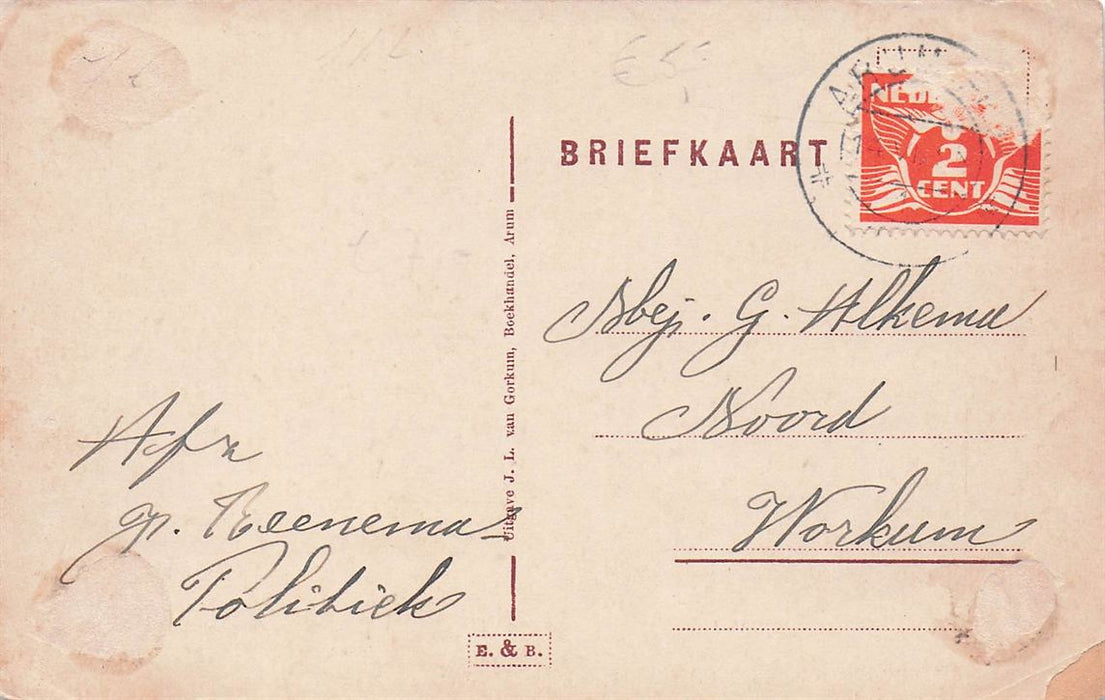 € 5,-
BRIEFKAART
ARUM
NED
2
CENT
Mej. G. Alkema
Noord
Workum
Afz
Politiek
Uitgave J. L. van Gorkum, Boekhandel, Arum
E. & B.